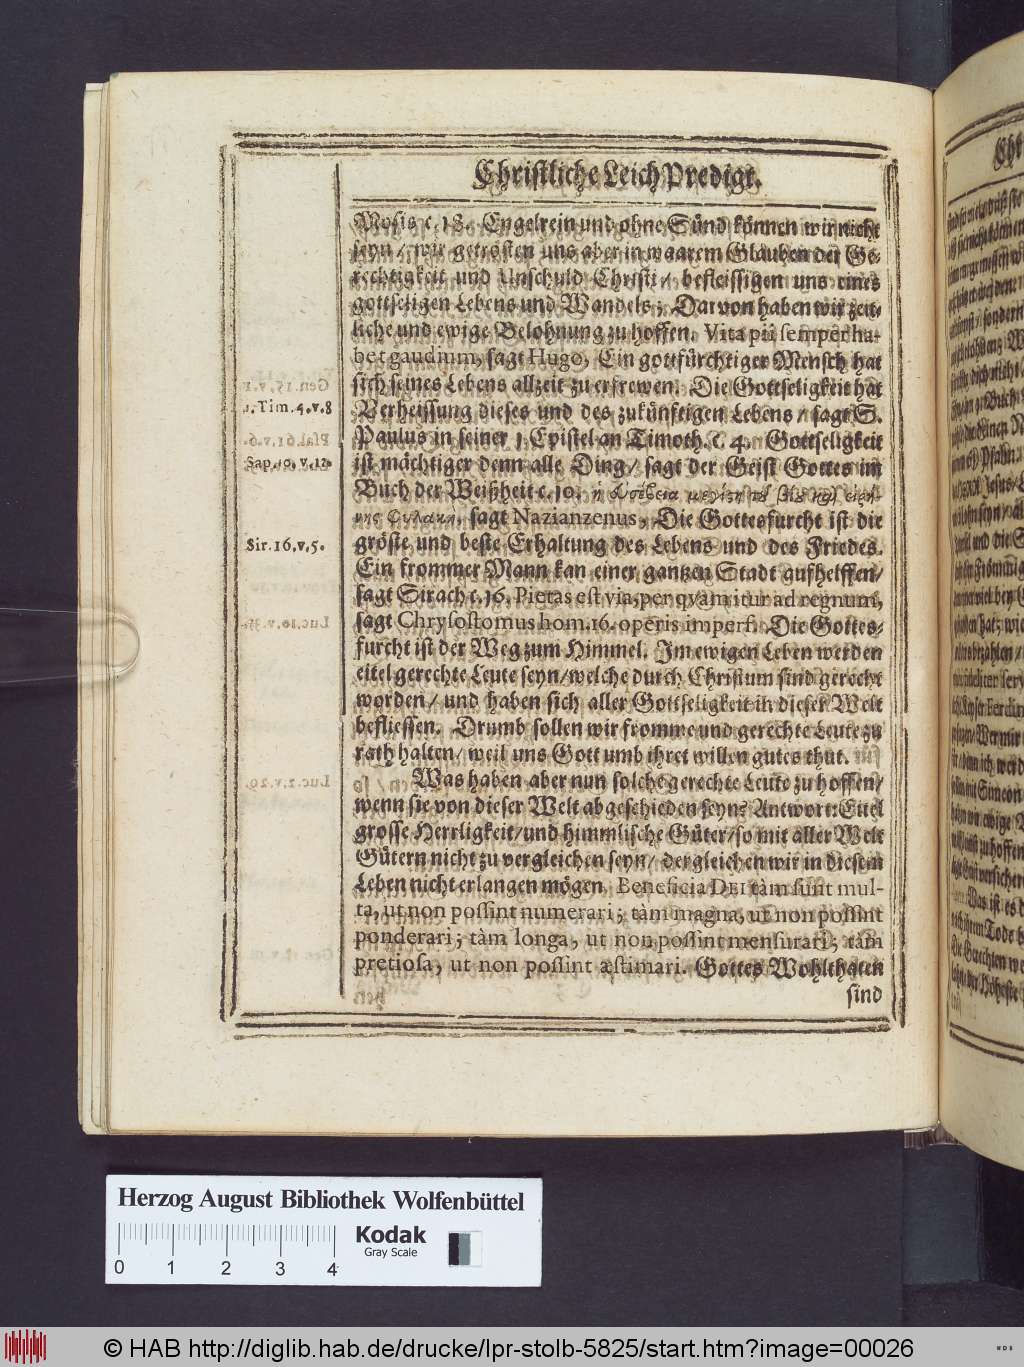 Christliche Leich Predigt.
Mosis c. 18. Engelrein und ohne Sünd können wir nicht
seyn / wir getrösten uns aber in waarem Glauben der Ge-
rechtigkeit und Unschuld Christi / befleissigen uns eines
gottseligen Lebens und Wandels; Darvon haben wir zeit-
liche und ewige Belohnung zu hoffen. Vita pii semper ha-
bet gaudium, sagt Hugo, Ein gottfürchtiger Mensch hat
sich seines Lebens allzeit zu erfrewen. Die Gottseligkeit hat
1. Tim. 4. v. 8
Verheissung dieses und des zukünfftigen Lebens / sagt S.
Paulus in seiner 1. Epistel an Timoth. c. 4. Gottseligkeit
Sap. 10. v. 12.
ist mächtiger denn alle Ding / sagt der Geist Gottes im
Buch der Weißheit c. 10. ἡ εὐσέβεια μεγίστη τοῦ βίου καὶ εἰρή-
νης φυλακή, sagt Nazianzenus, Die Gottesfurcht ist die
Sir. 16. v. 5.
gröste und beste Erhaltung des Lebens und des Friedes.
Ein frommer Mann kan einer gantzen Stadt auffhelffen /
sagt Sirach c. 16. Pietas est via, per qvam itur ad regnum,
sagt Chrysostomus hom. 16. operis imperf. Die Gottes-
furcht ist der Weg zum Himmel. Im ewigen Leben werden
eitel gerechte Leute seyn / welche durch Christum sind gerecht
worden / und haben sich aller Gottseligkeit in dieser Welt
befliessen. Drumb sollen wir fromme und gerechte Leute zu
rath halten / weil uns Gott umb ihret willen gutes thut.
Was haben aber nun solche gerechte Leute zu hoffen /
wenn sie von dieser Welt abgeschieden seyn? Antwort: Eitel
grosse Herrligkeit / und himmlische Güter / so mit aller Welt
Gütern nicht zu vergleichen seyn / dergleichen wir in diesem
Leben nicht erlangen mögen. Beneficia DEI tàm sunt mul-
ta, ut non possint numerari; tàm magna, ut non possint
ponderari; tàm longa, ut non possint mensurari; tàm
pretiosa, ut non possint æstimari. Gottes Wohlthaten
sind
Herzog August Bibliothek Wolfenbüttel
Kodak
Gray Scale
0 1 2 3 4
© HAB http://diglib.hab.de/drucke/lpr-stolb-5825/start.htm?image=00026